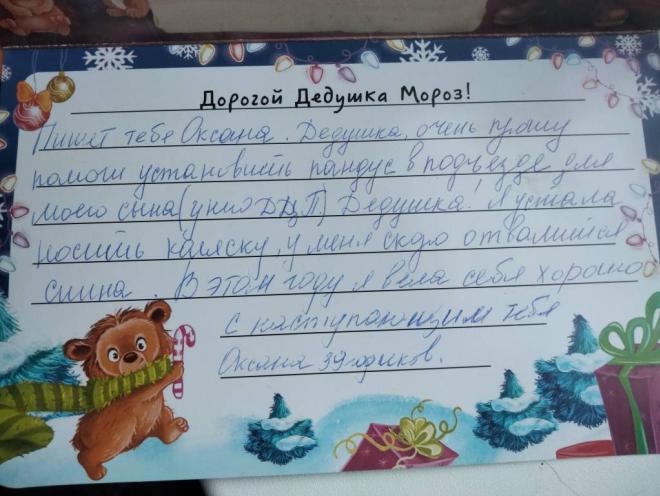 Дорогой Дедушка Мороз!
Пишет тебе Оксана. Дедушка, очень прошу
помоги установить пандус в подъезде для
моего сына (у него ДЦП) Дедушка! Я устала
носить каляску, у меня скоро отвалится
спина. В этом году я вела себя хорошо
с наступающим тебя
Оксана 39 годиков.